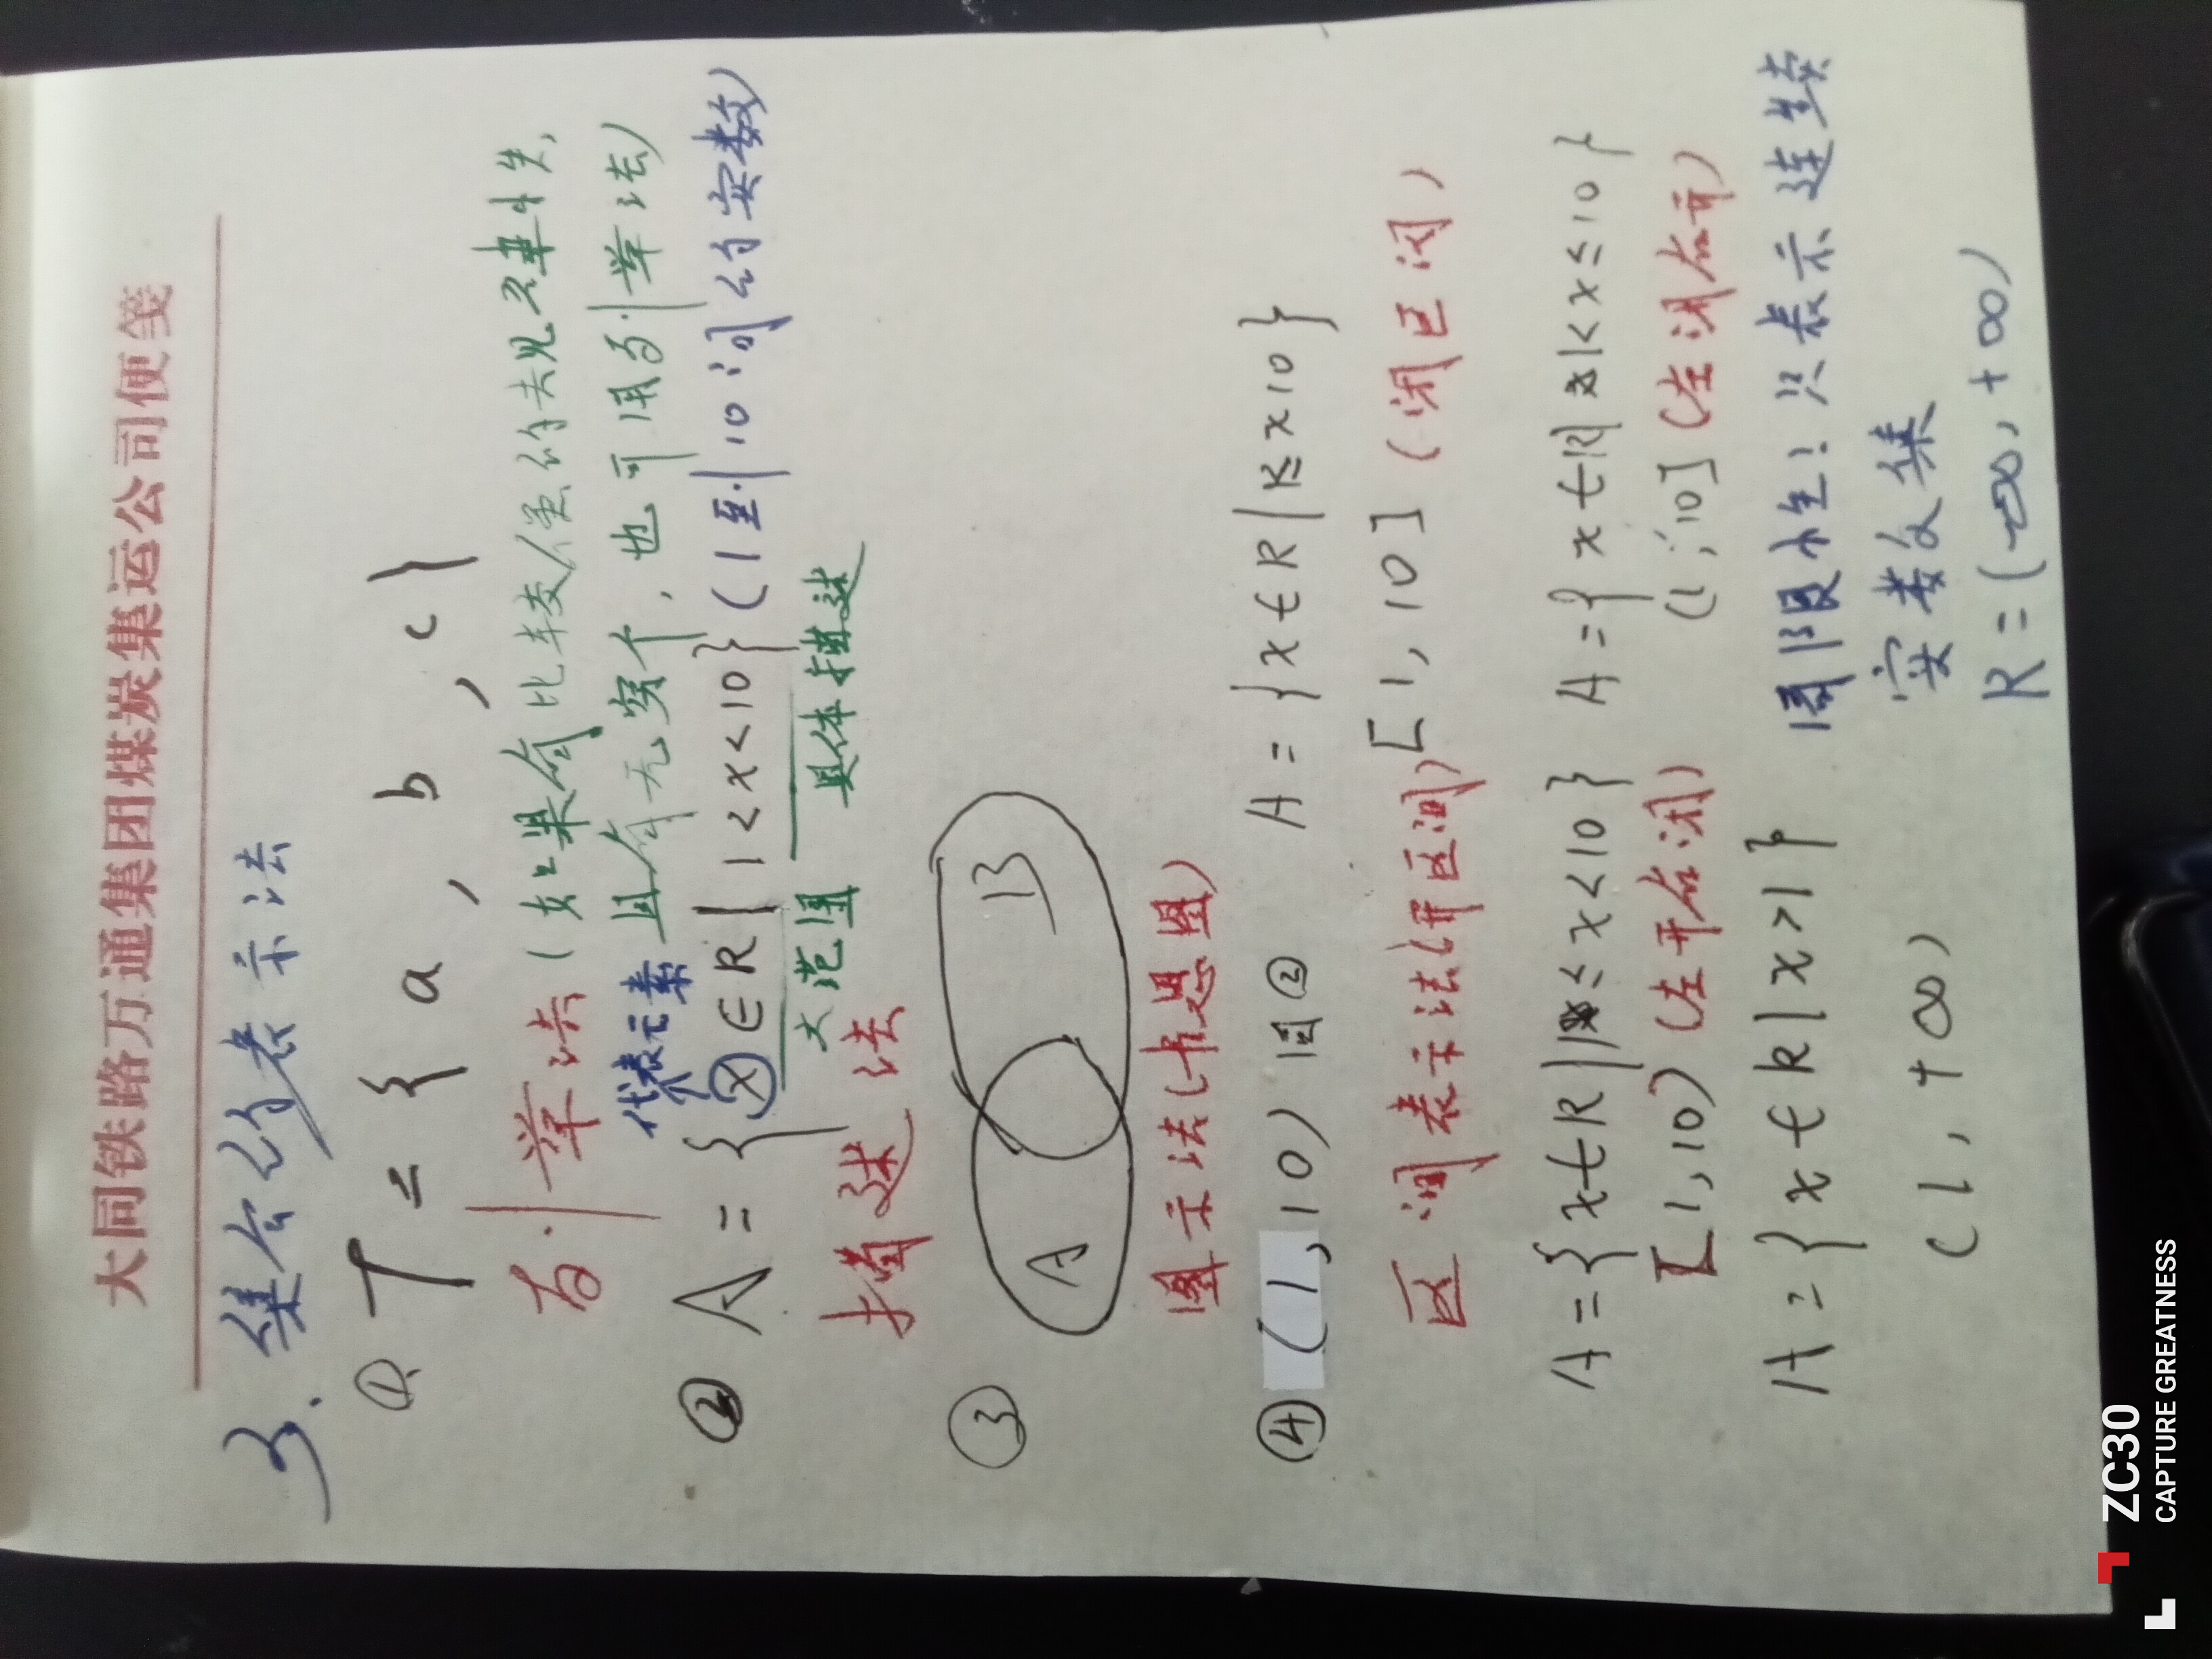 大同铁路万通集团煤炭集运公司便笺
3. 集合的表示法
① T = { a , b , c }
列举法 (如果有比较强的去见聿性,
且有无穷个, 也可用列举法)
代表元素
② A = { x ∈ R | 1 < x < 10 } (1至到10间的实数)
大范围 具体描述
描述法
③ A B
图示法(韦恩图)
④ (1, 10) 同② A = { x ∈ R | 1 ≤ x 10 }
区间表示法(开区间) [1, 10] (闭区间)
A = { x ∈ R | 1 ≤ x < 10 } A = { x ∈ R | 1 < x ≤ 10 }
[1, 10) (左开右闭) (1, 10] (左闭右开)
A = { x ∈ R | x > 1 } 局限性! 只表示连续
(1, +∞) 实数集
R = (-∞, +∞)
ZC30
CAPTURE GREATNESS